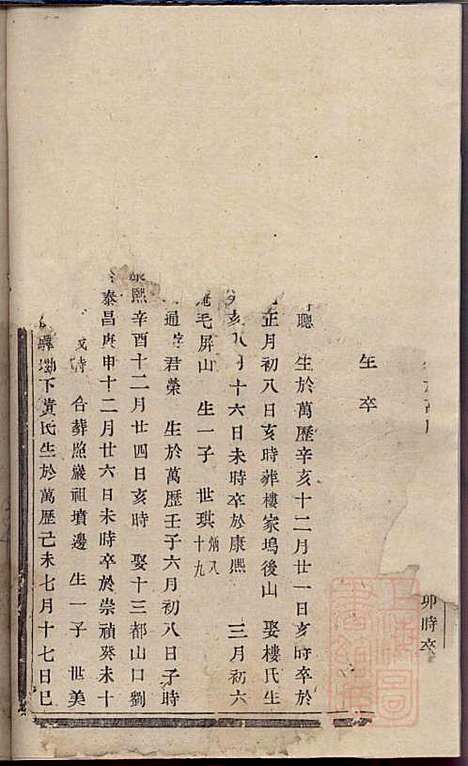 卯時卒
生卒
聰 生於萬歷辛亥十二月廿一日亥時卒於
正月初八日亥時葬樓家塢後山 娶樓氏生
亥八月十六日未時卒於康熙 三月初六
毛屏山 生一子 世琪 炳八 十九
通 君榮 生於萬歷壬子六月初八日子時
熙辛酉十二月廿四日亥時 娶十三都山口劉
泰昌庚申十二月廿六日未時卒於崇禎癸未十
時 合葬照巖祖墳邊 生一子 世美
下黄氏生於萬歷己未七月十七日巳